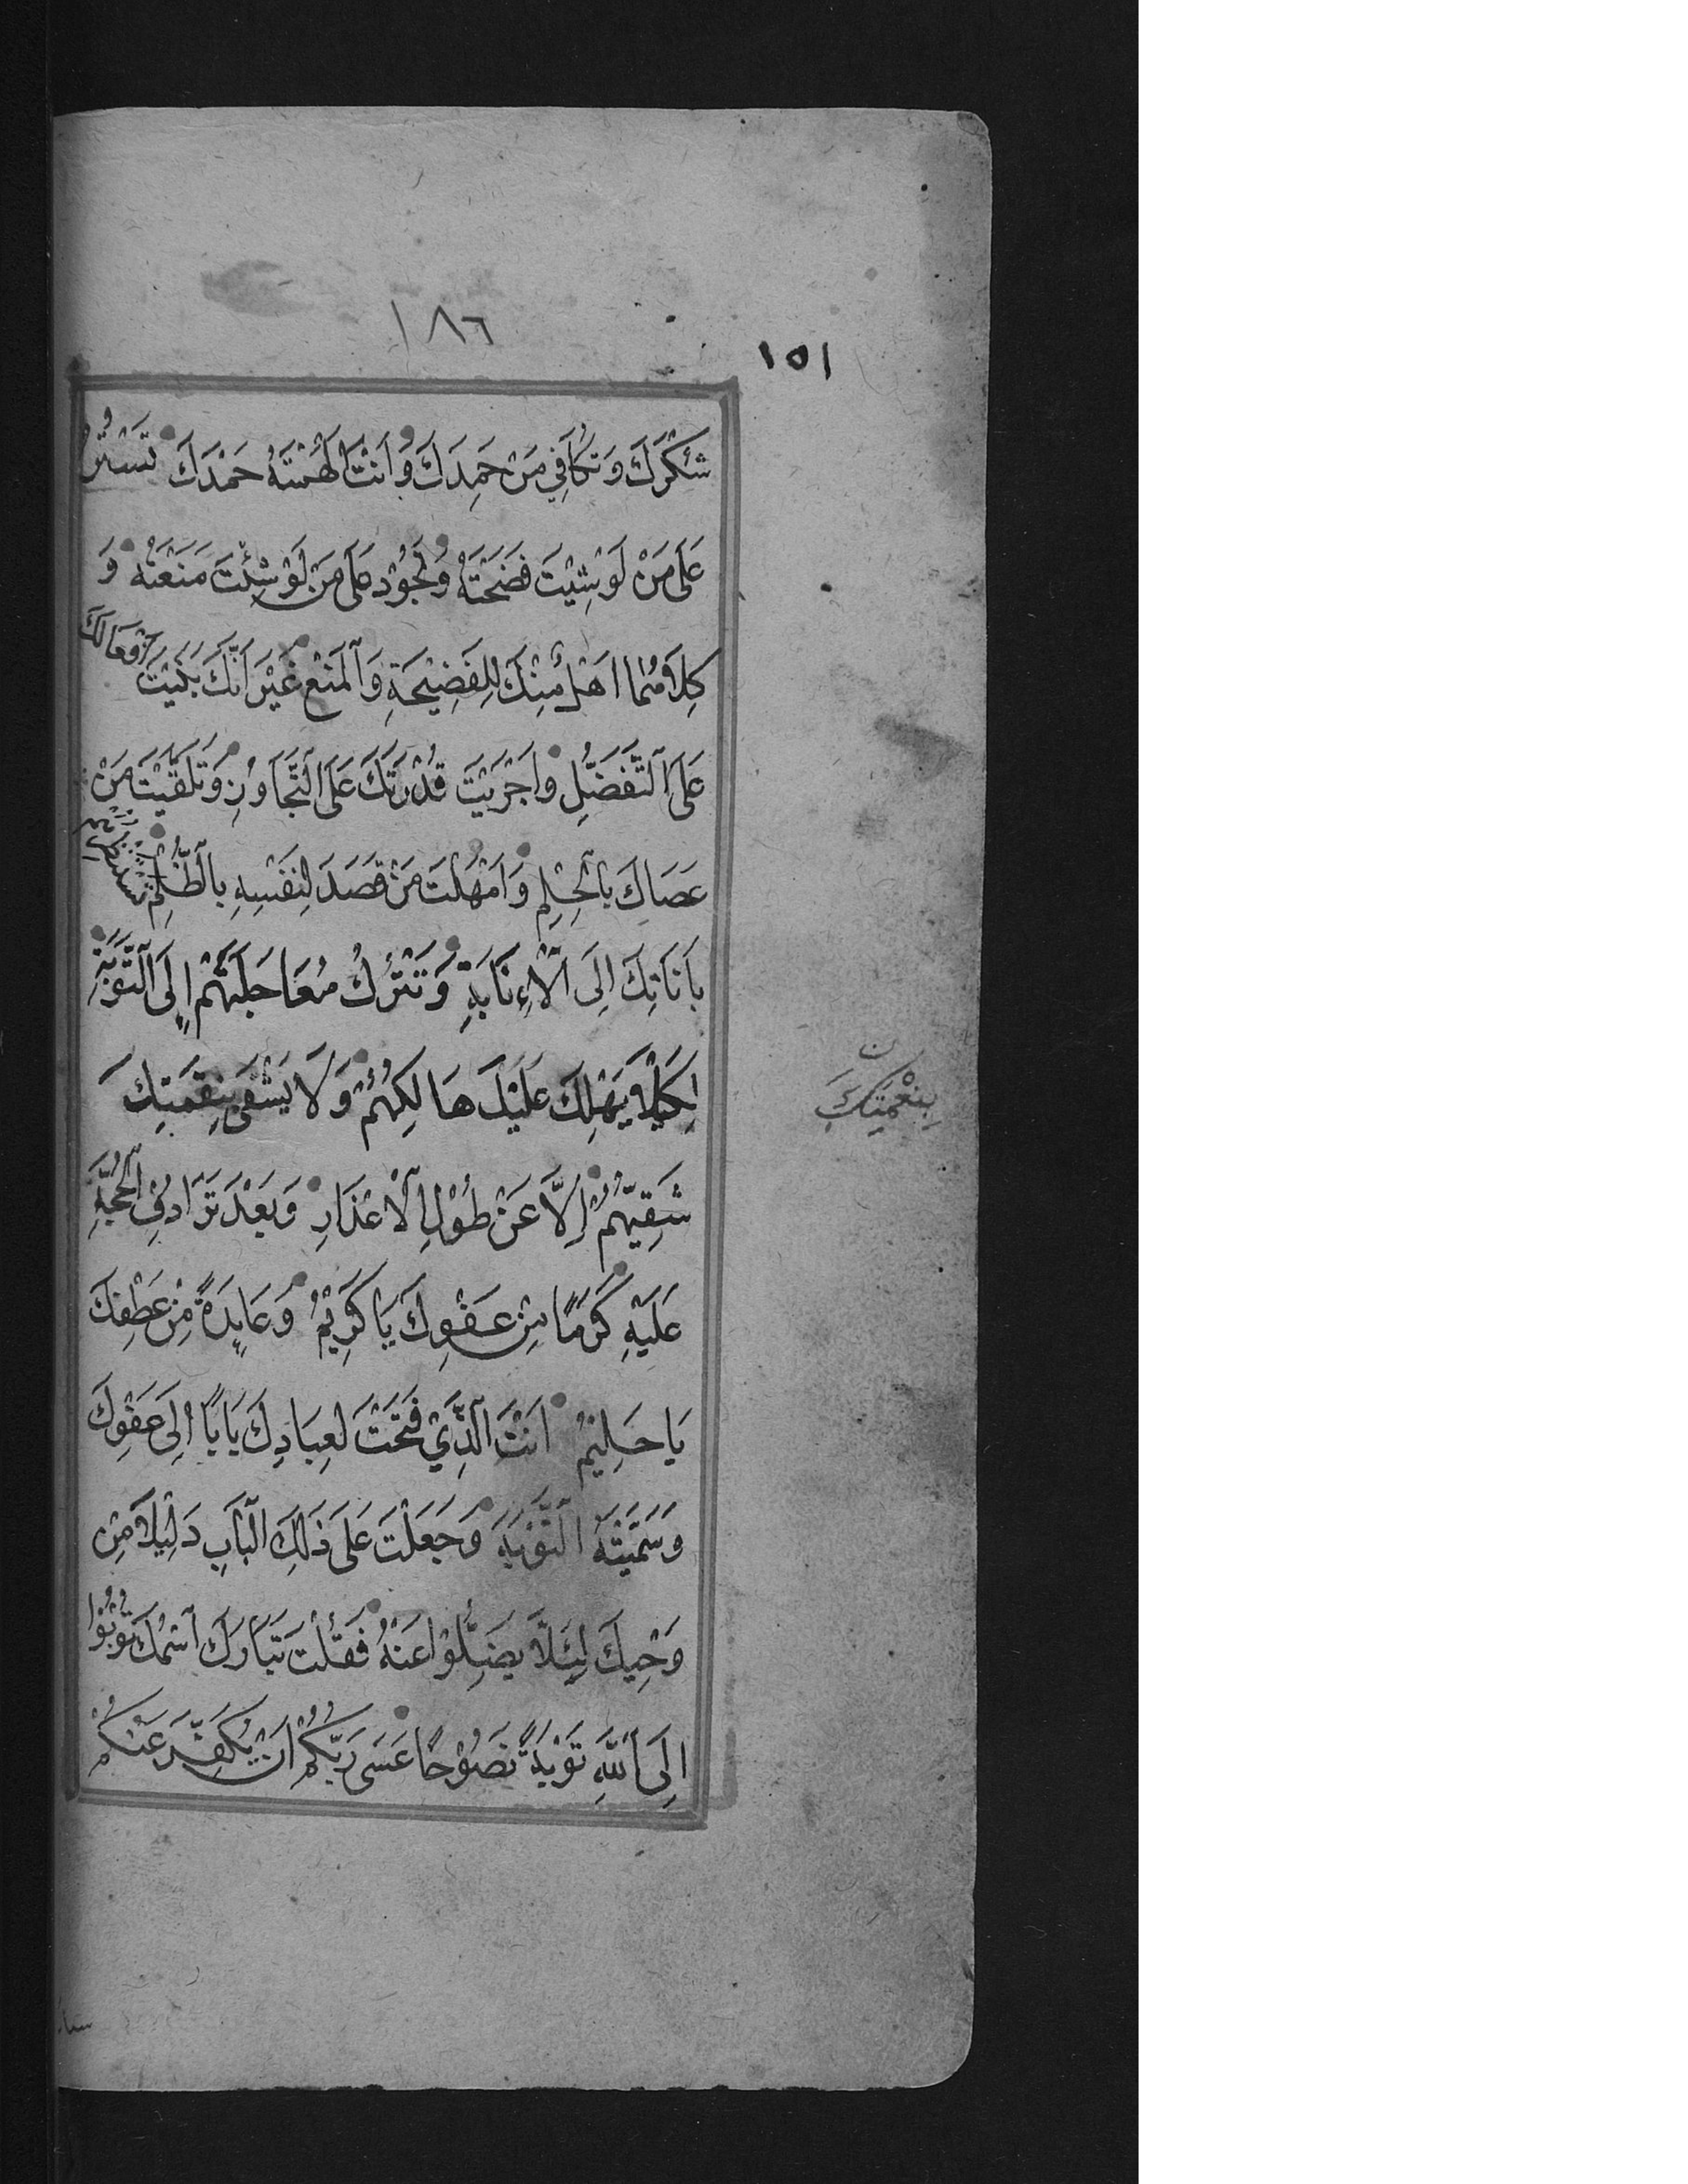 ١٨٦
١٥١
شَكَرَكَ وَتُكَافِي مَنْ حَمِدَكَ وَأَنْتَ أَلْهَمْتَهُ حَمْدَكَ تَسْتُرُ
عَلَى مَنْ لَوْ شِئْتَ فَضَحْتَهُ وَتَجُوْدُ عَلَى مَنْ لَوْ شِئْتَ مَنَعْتَهُ وَ
كِلَاهُمَا اَهْلٌ مِنْكَ لِلْفَضِيْحَةِ وَالْمَنْعِ غَيْرَ اَنَّكَ بَنَيْتَ اَفْعَالَكَ
عَلَى التَّفَضُّلِ وَاَجْرَيْتَ قُدْرَتَكَ عَلَى التَّجَاوُزِ وَتَلَقَّيْتَ مَنْ
عَصَاكَ بِالْحِلْمِ وَاَمْهَلْتَ مَنْ قَصَدَ لِنَفْسِهِ بِالظُّلْمِ تَسْتَنْظِرُهُمْ
بِاَنَاتِكَ اِلَى الْاِنَابَةِ وَتَتْرُكُ مُعَاجَلَتَهُمْ اِلَى التَّوْبَةِ
لِكَيْلَا يَهْلِكَ عَلَيْكَ هَالِكُهُمْ وَلَا يَشْقَى بِنِقْمَتِكَ
شَقِيُّهُمْ اِلَّا عَنْ طُوْلِ الْاَعْذَارِ وَبَعْدَ تَرَادُفِ الْحُجَّةِ
عَلَيْهِ كَرَمًا مِنْ عَفْوِكَ يَا كَرِيْمُ وَعَايِدَةً مِنْ عَطْفِكَ
يَا حَلِيْمُ اَنْتَ الَّذِيْ فَتَحْتَ لِعِبَادِكَ بَابًا اِلَى عَفْوِكَ
وَسَمَّيْتَهُ التَّوْبَةَ وَجَعَلْتَ عَلَى ذَلِكَ الْبَابِ دَلِيْلًا مِنْ
وَحْيِكَ لِئَلَّا يَضِلُّوْا عَنْهُ فَقُلْتَ تَبَارَكَ اسْمُكَ تُوْبُوْا
اِلَى اللَّهِ تَوْبَةً نَصُوْحًا عَسَى رَبُّكُمْ اَنْ يُكَفِّرَ عَنْكُمْ
ن
بِنِعْمَتِكَ